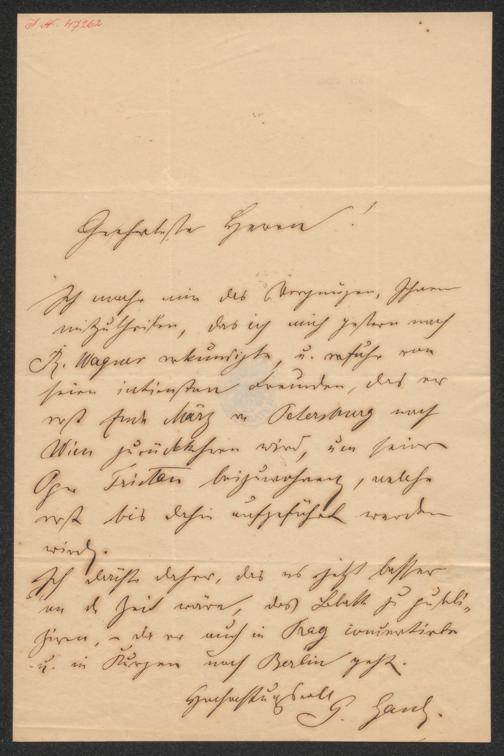 I. N. 47262
Geehrteste Herren!
Ich mache mir das Vergnügen, Ihnen
mitzutheilen, das ich mich gestern nach
R. Wagner erkundigte, u. erfuhr von
seinen intimsten Freunden, das er
erst Ende März v Petersburg nach
Wien zurückkehren wird, um seiner
Oper Tristan beizuwohnen, welche
erst bis dahin aufgeführt werden
wird.
Ich dächte daher, das es jetzt besser
an d. Zeit wäre, das Blatt zu publi-
ziren, – da er auch in Prag concertirte
u. in Kurzen nach Berlin geht.
Hochachtungsvoll
G.